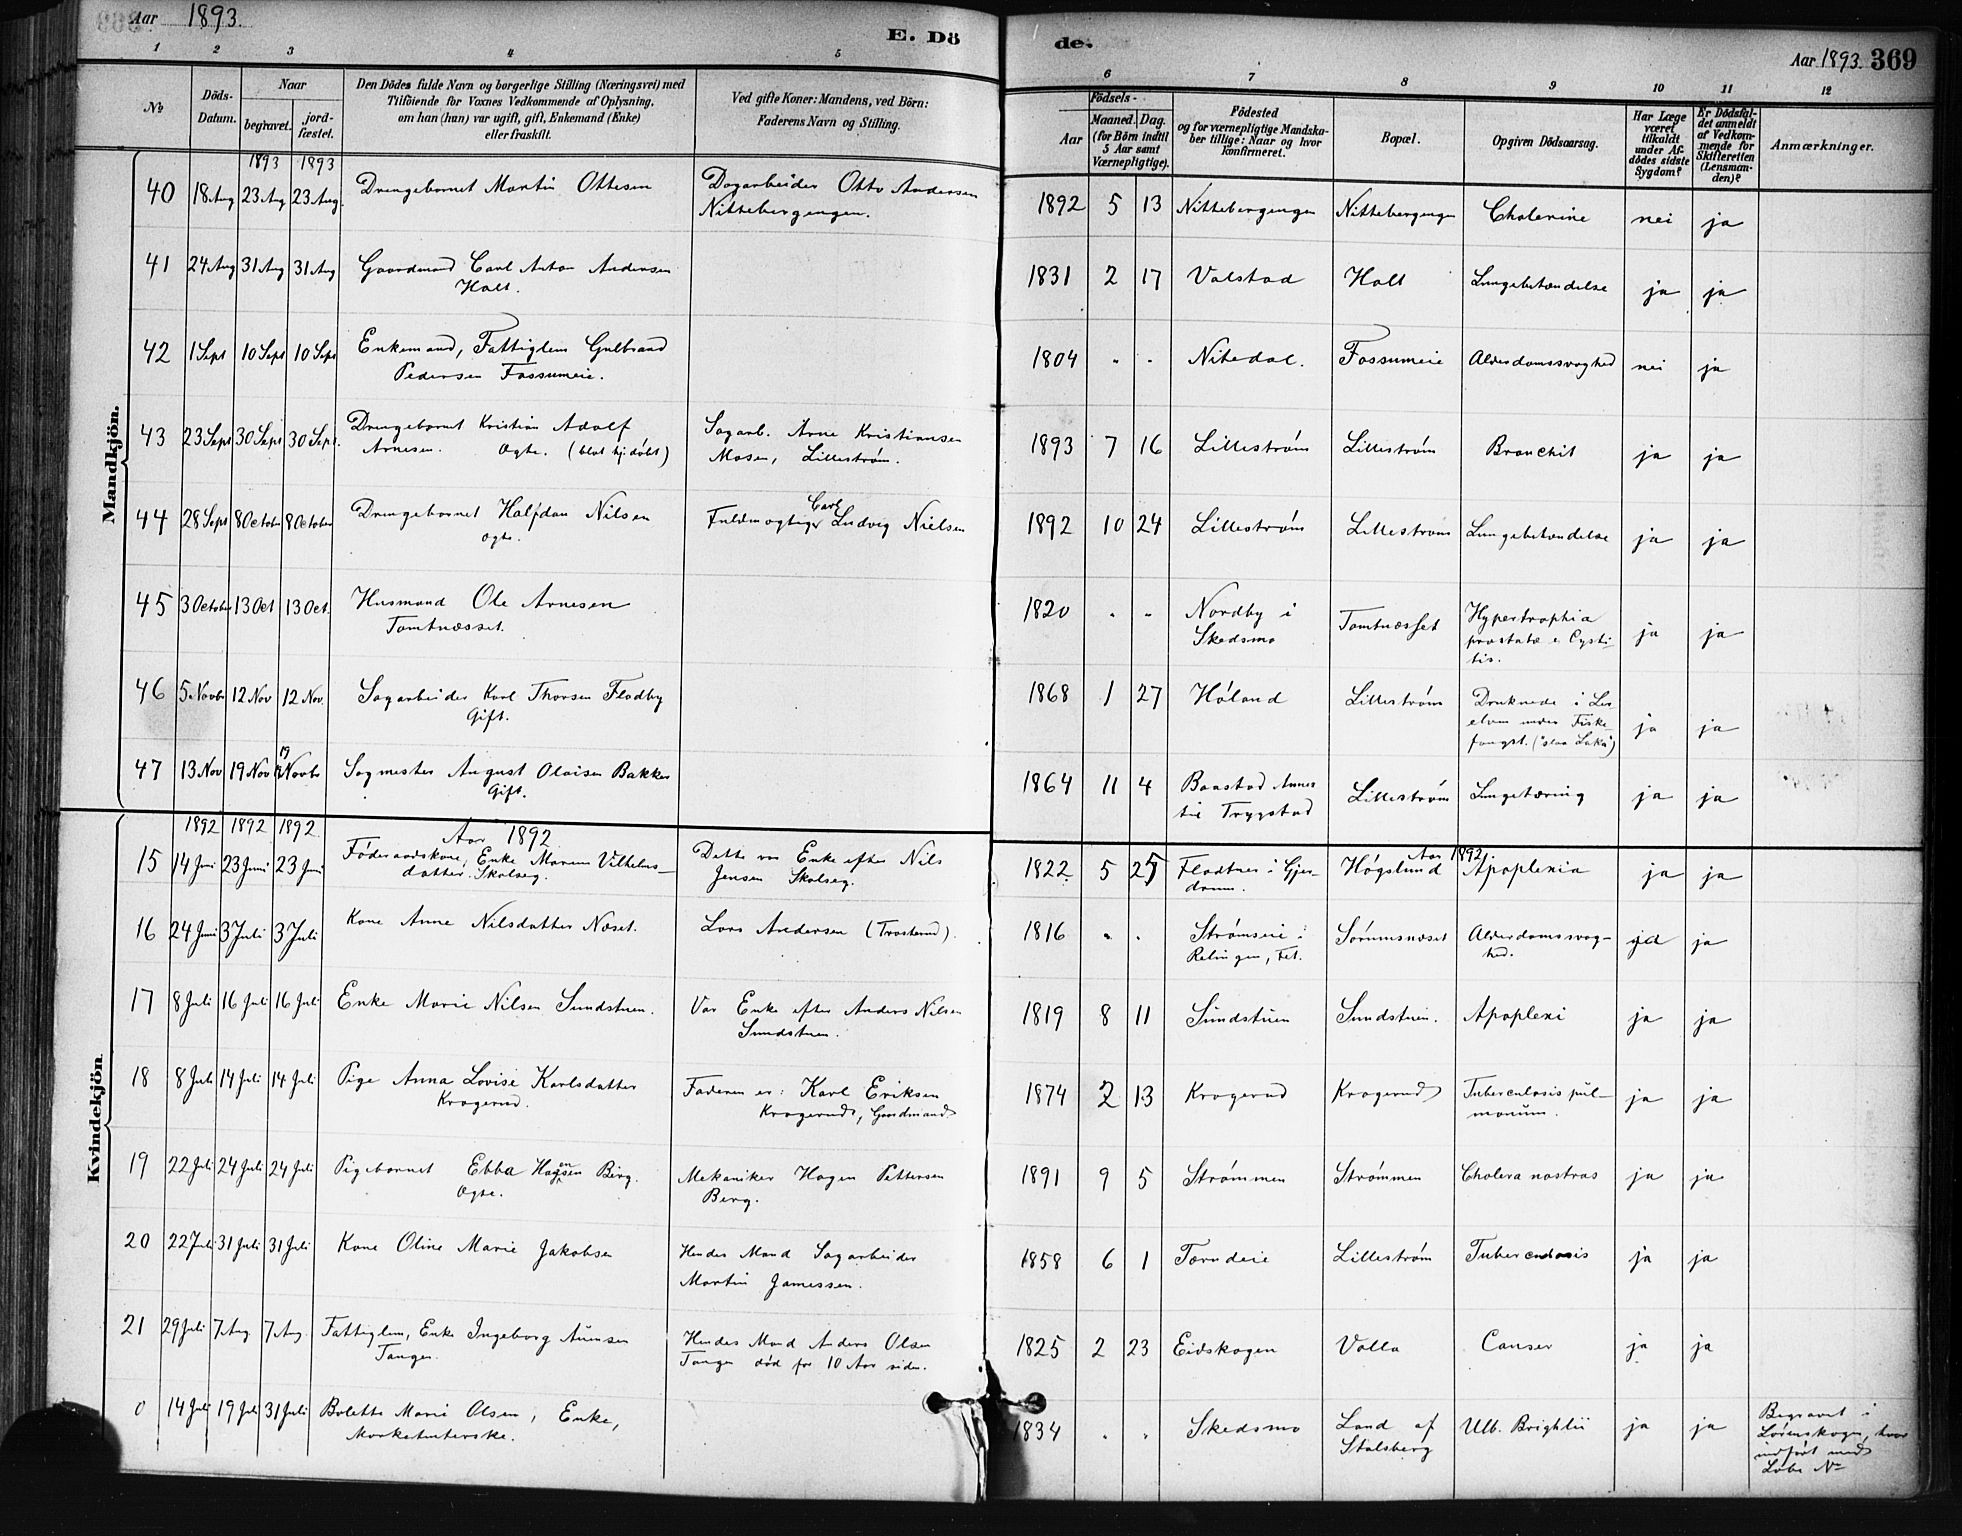 Aar 1893.
E. Dö
de.
Aar 1893. 369
1 2 3 4 5
6 7 8 9 10 11 12
№
Döds-Datum.
Naar
begravet.
jord-fæstet.
Den Dödes fulde Navn og borgerlige Stilling (Næringsvei) med
Tilföiende for Voxnes Vedkommende af Oplysning,
om han (hun) var ugift, gift, Enkemand (Enke)
eller fraskilt.
Ved gifte Koner: Mandens, ved Börn:
Faderens Navn og Stilling.
Födsels-
Aar
Maaned. Dag.
(for Börn indtil
5 Aar samt
Værnepligtige).
Födested
og for værnepligtige Mandska-
ber tillige: Naar og hvor
konfirmeret.
Bopæl.
Opgiven Dödsaarsag.
Har Læge
været
tilkaldt
under Af-
dödes sidste
Sygdom?
Er Dödsfal-
det anmeldt
af Vedkom-
mende for
Skifteretten
(Lensman-
den)?
Anmærkninger.
Mandkjön.
1893 1893
40 18 Aug 23 Aug 23 Aug. Drengebarnet Martin Ottesen Dagarbeider Otto Andersen
Nittebergengen.
1892 5 13 Nittebergengen Nittebergengen Cholerine nei ja
41 24 Aug 31 Aug 31 Aug Gaardmand Carl Anton Andersen
Holt.
1831 2 17 Valstad Holt Lungebetændelse ja ja
42 1 Sept 10 Sept 10 Sept Enkemand, Fattiglem Gulbrand
Pedersen Fossumeie.
1804 " " Nitedal. Fossumeie Alderdomssvaghed nei ja
43 23 Sept 30 Sept 30 Sept. Drengebarnet Kristian Adolf
Arnesen. Ægte. (blot hj.døbt)
Sagarb. Arne Kristiansen
Mosen, Lillestrøm.
1893 7 16 Lillestrøm Lillestrøm Bronchit ja ja
44 28 Sept 8 October 8 October Drengebarnet Halfdan Nilsen
Ægte.
Fuldmægtig Carl Ludvig Nielsen
1892 10 24 Lillestrøm Lillestrøm Lungebetændelse ja ja
45 3 October 13 Oct 13 Oct. Husmand Ole Arnesen
Tomtnæsset.
1820 " " Nordby i
Skedsmo
Tomtnæsset
Hypertrophia
prostatæ & Cysti-
tis.
ja ja
46 5 Novbr 12 Nov 12 Nov. Sagarbeider Karl Thorsen Flodby
Gift.
1868 1 27 Høland Lillestrøm
Druknede i Ler
elven under Fiske-
fangst. ("slaa Laka")
ja ja
47 13 Nov 19 Nov 19 Novbr Sagmester August Olaisen Bakker
Gift.
1864 11 4 Baastad Annex
til Trygstad
Lillestrøm Lungetæring ja ja
Kvindekjön
1892 1892 1892. Aar 1892.
Aar 1892.
15 14 Juni 23 Juni 23 Juni Føderaadskone, Enke Maren Vilhelms-
datter Skolseg.
Dette var Enke efter Nils
Jensen Skolseg.
1822 5 25 Fladtner i Gjer-
drum.
Høgslund Apoplexia ja ja
16 24 Juni 3 Juli 3 Juli Kone Anne Nilsdatter Næset. Lars Andersen (Trosterud).
1816 " " Strømseie i
Relingen, Fet.
Sørumsnæset Alderdomssvag-
hed.
ja ja
17 8 Juli 16 Juli 16 Juli Enke Marie Nilsen Sundstuen. Var Enke efter Anders Nilsen
Sundstuen.
1819 8 11 Sundstuen Sundstuen. Apoplexi ja ja
18 8 Juli 14 Juli 14 Juli Pige Anna Lovise Karlsdatter
Krogerud.
Faderen er: Karl Eriksen
Krogerud, Gaardmand
1874 2 13 Krogerud Krogerud Tuberculosis pul-
monum.
ja ja
19 22 Juli 24 Juli 24 Juli Pigebarnet Ebba Hagensen Berg.
Ægte.
Mekaniker Hagen Pettersen
Berg.
1891 9 5 Strømmen Strømmen Cholera nostras ja ja
20 22 Juli 31 Juli 31 Juli Kone Oline Marie Jakobsen Hendes Mand Sagarbeider
Martin Jamessen.
1858 6 1 Tærudeie Lillestrøm Tuberculosis ja ja
21 29 Juli 7 Aug. 7 Aug. Fattiglem, Enke Ingeborg
Tangen.
Hendes Mand Anders Olsen
Tangen død for 10 Aar siden.
1825 2 23 Eidskogen Volla Canser ja ja
0 14 Juli 19 Juli 31 Juli Bolette Marie Olsen, Enke,
Marketenterske.
1834 " " Skedsmo Land af
Stalsberg
Ulb. Brightii ja ja
Begravet i
Lørenskogen, hvor
indført med
Løbe No